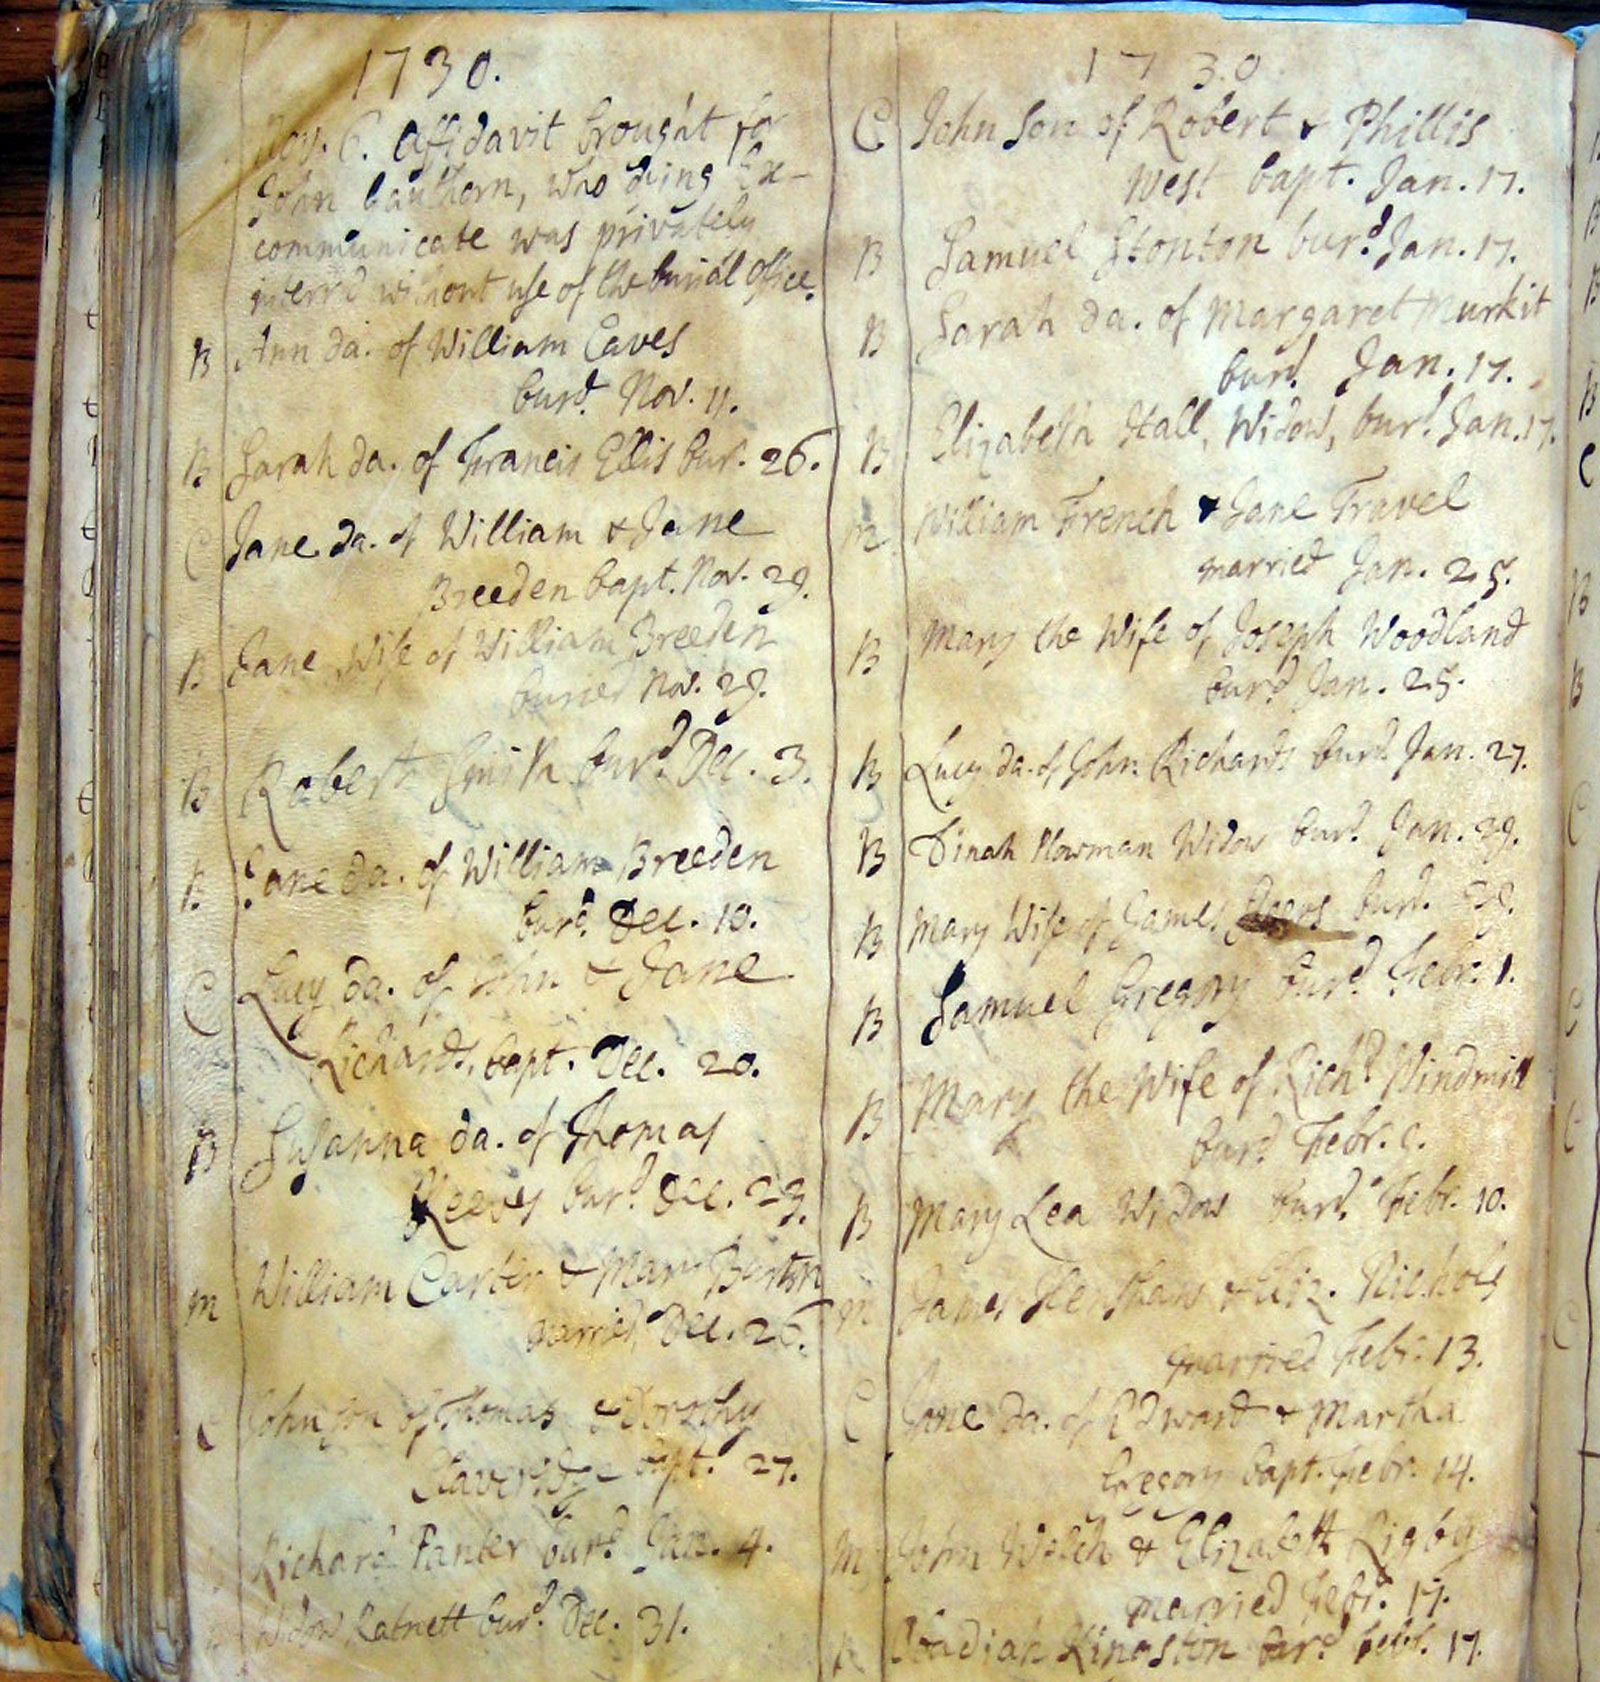 1730.
Nov. 6. Affidavit brought for
John Cauthorn, who dying Ex-
communicate was privately
interr'd without use of the burial office.
B Ann da. of William Eaves
burd. Nov. 11.
B Sarah da. of Francis Ellis bur. 26.
C Jane da. of William & Jane
Breeden bapt. Nov. 29.
B Jane Wife of William Breeden
buried Nov. 29.
B Robert Smith burd. Dec. 3.
B Jane da. of William Breeden
burd. Dec. 10.
C Lucy da. of John & Jane
Richards, bapt. Dec. 20.
B Susanna da. of Thomas
Reeves burd. Dec. 23.
m William Carter & Mary Burton
married Dec. 26.
C John son of Thomas & Dorothy
Claveridge bapt. 27.
Richard Panter burd. Jan. 4.
Widow Ratnett burd. Dec. 31.
1730
C John Son of Robert & Phillis
West bapt. Jan. 17.
B Samuel Stonton burd. Jan. 17.
B Sarah da. of Margaret Murkit
burd. Jan. 17.
B Elizabeth Hall, Widow, burd. Jan. 17.
m William French & Jane Travel
married Jan. 25.
B Mary the Wife of Joseph Woodland
burd. Jan. 25.
B Lucy da. of John Richards burd. Jan. 27.
B Dinah Norman Widow burd. Jan. 29.
B Mary Wife of James burd. 29.
B Samuel Gregory burd. Febr. 1.
B Mary the Wife of Richd. Windmill
burd. Febr.
B Mary Lea Widow burd. Febr. 10.
m James Henshaw & Eliz. Nichols
married Febr. 13.
C Jane da. of Edward & Martha
Gregory bapt. Febr. 14.
m John Welch & Elizabeth Rigby
married Febr. 17.
B Obadiah Kingston burd. Febr. 17.